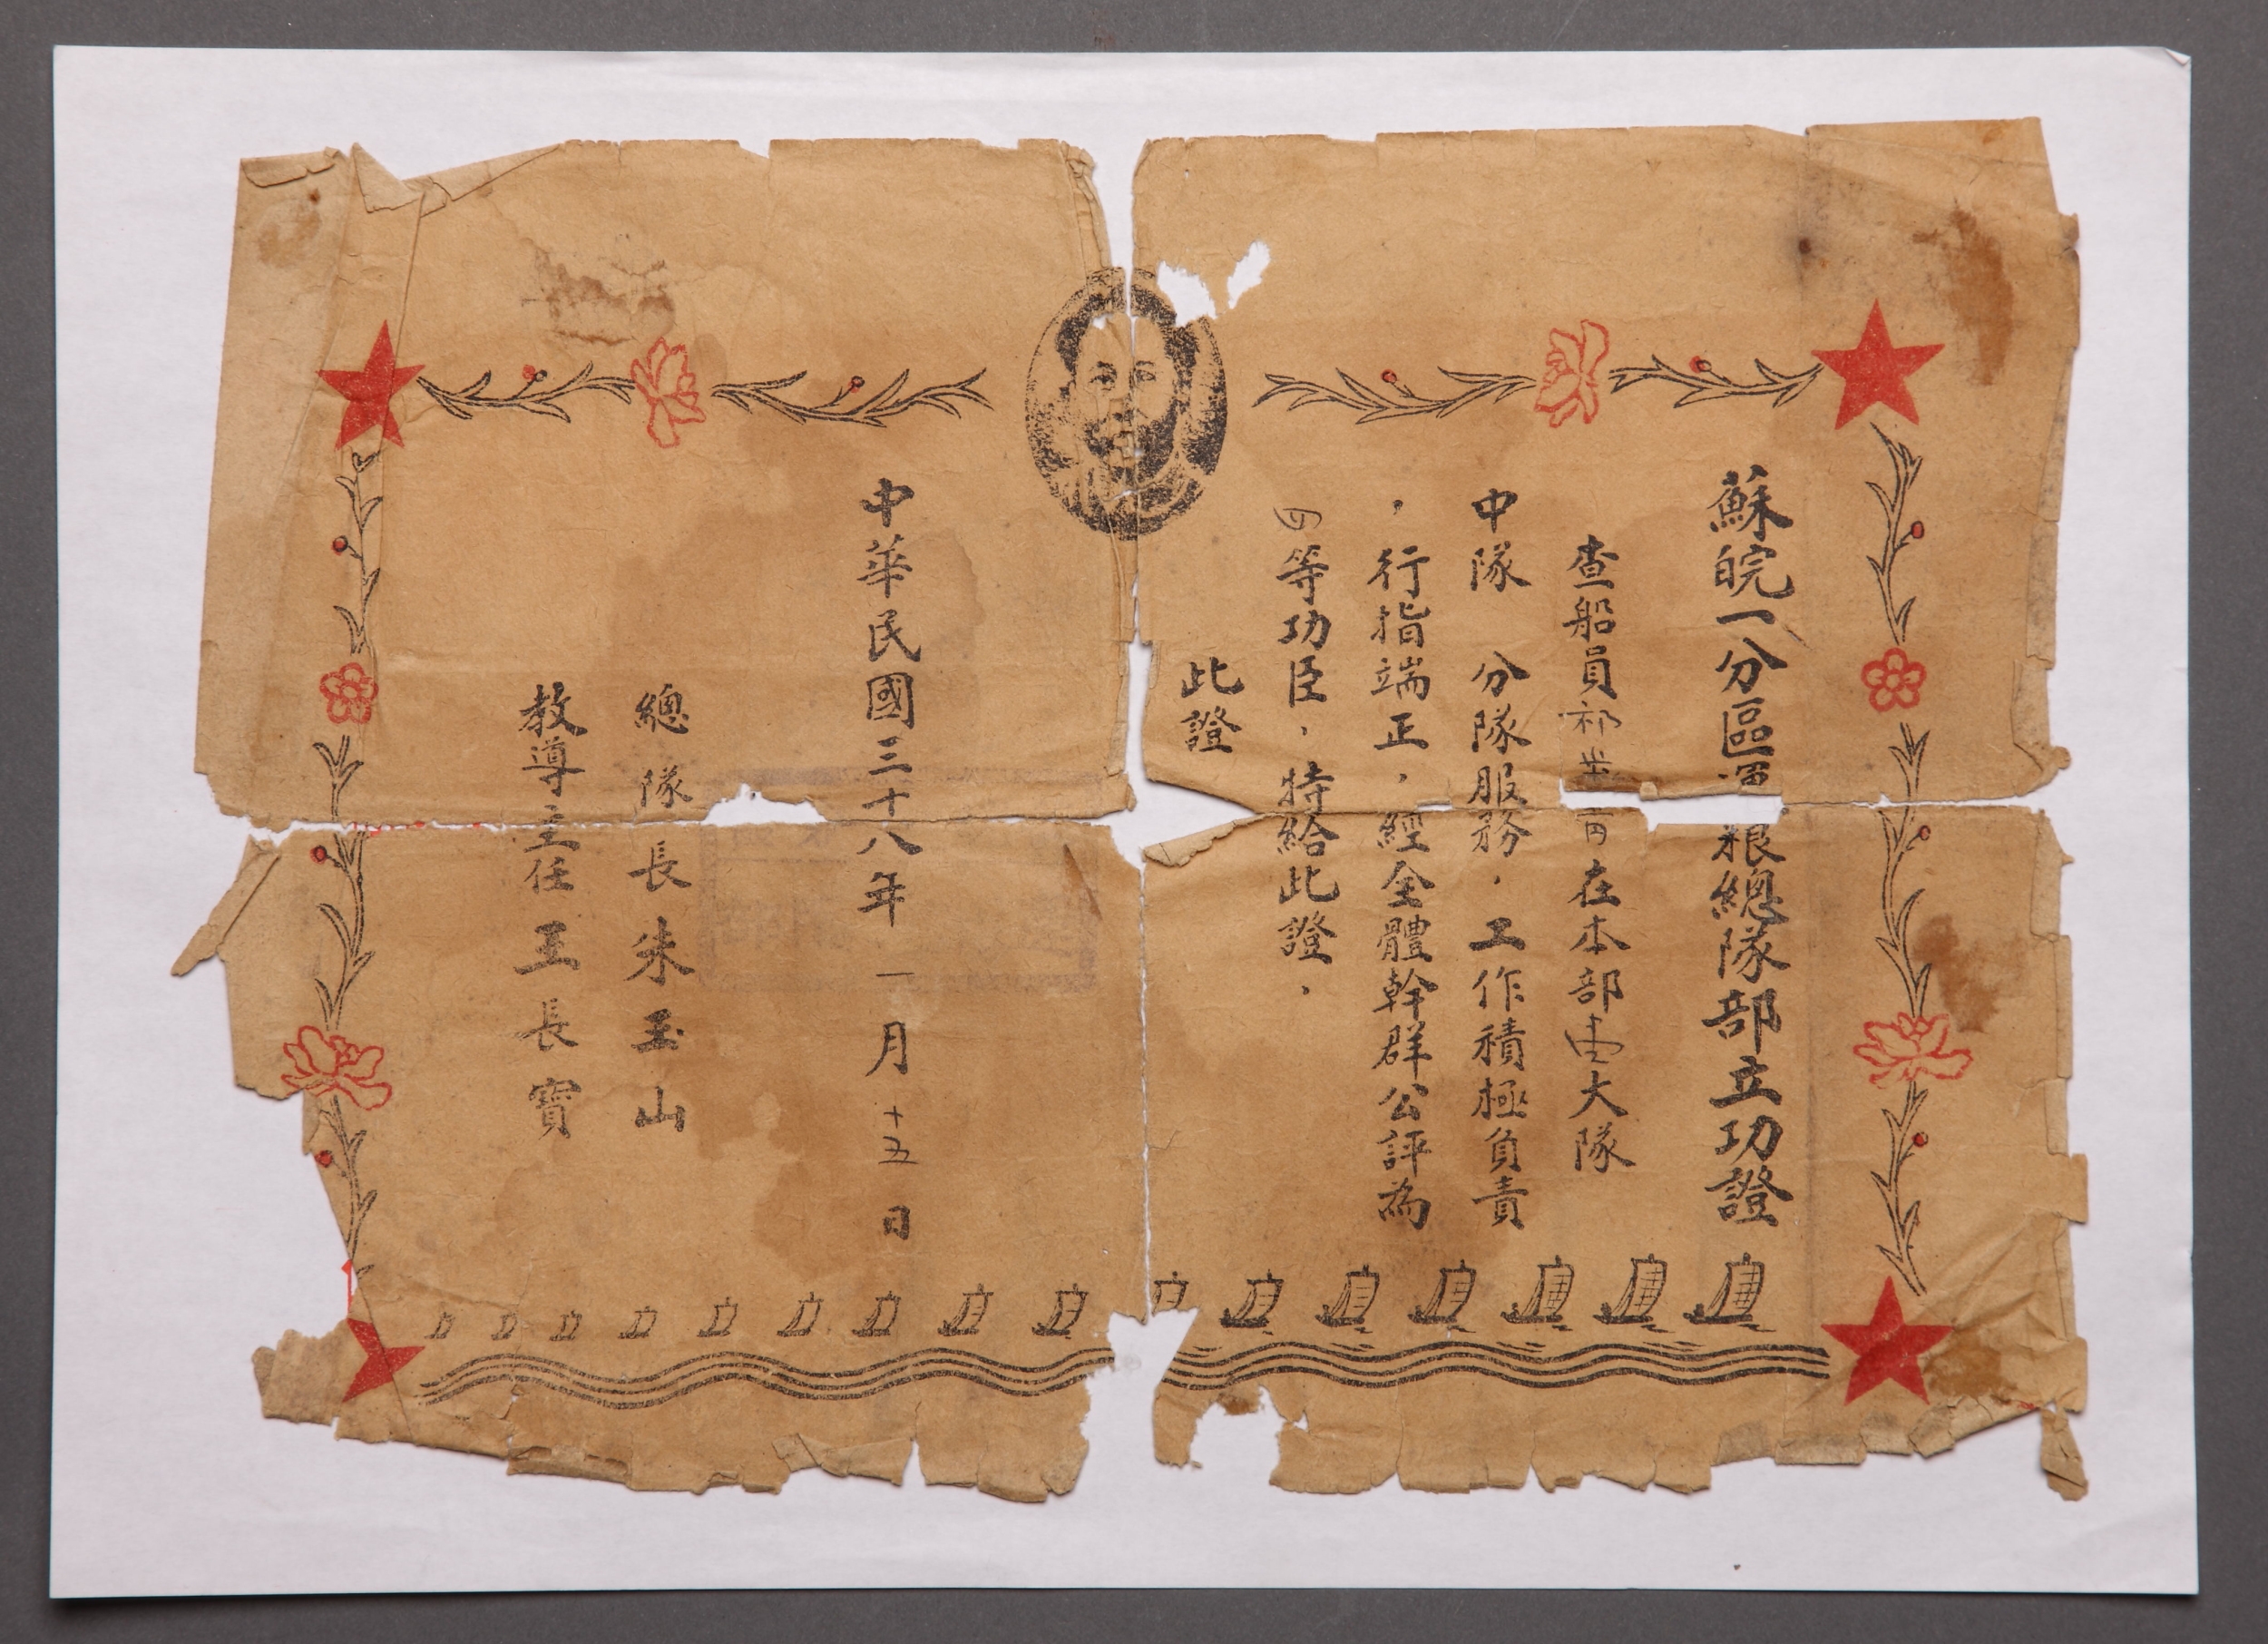 蘇皖一分區 粮總隊部立功證
查船員祁 在本部 大隊
中隊 分隊服務，工作積極負責
，行指端正，經全體幹群公評為
四等功臣，特給此證，
此證
中華民國三十八年一月十五日
總隊長朱玉山
教導主任王長寶